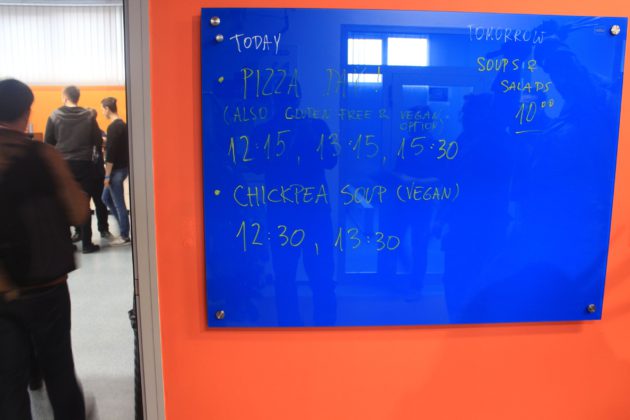 TODAY
• PIZZA DAY!
(ALSO GLUTEN FREE & VEGAN
OPTION)
12:15, 13:15, 15:30
• CHICKPEA SOUP (VEGAN)
12:30, 13:30
TOMORROW
SOUPS &
SALADS
10⁰⁰